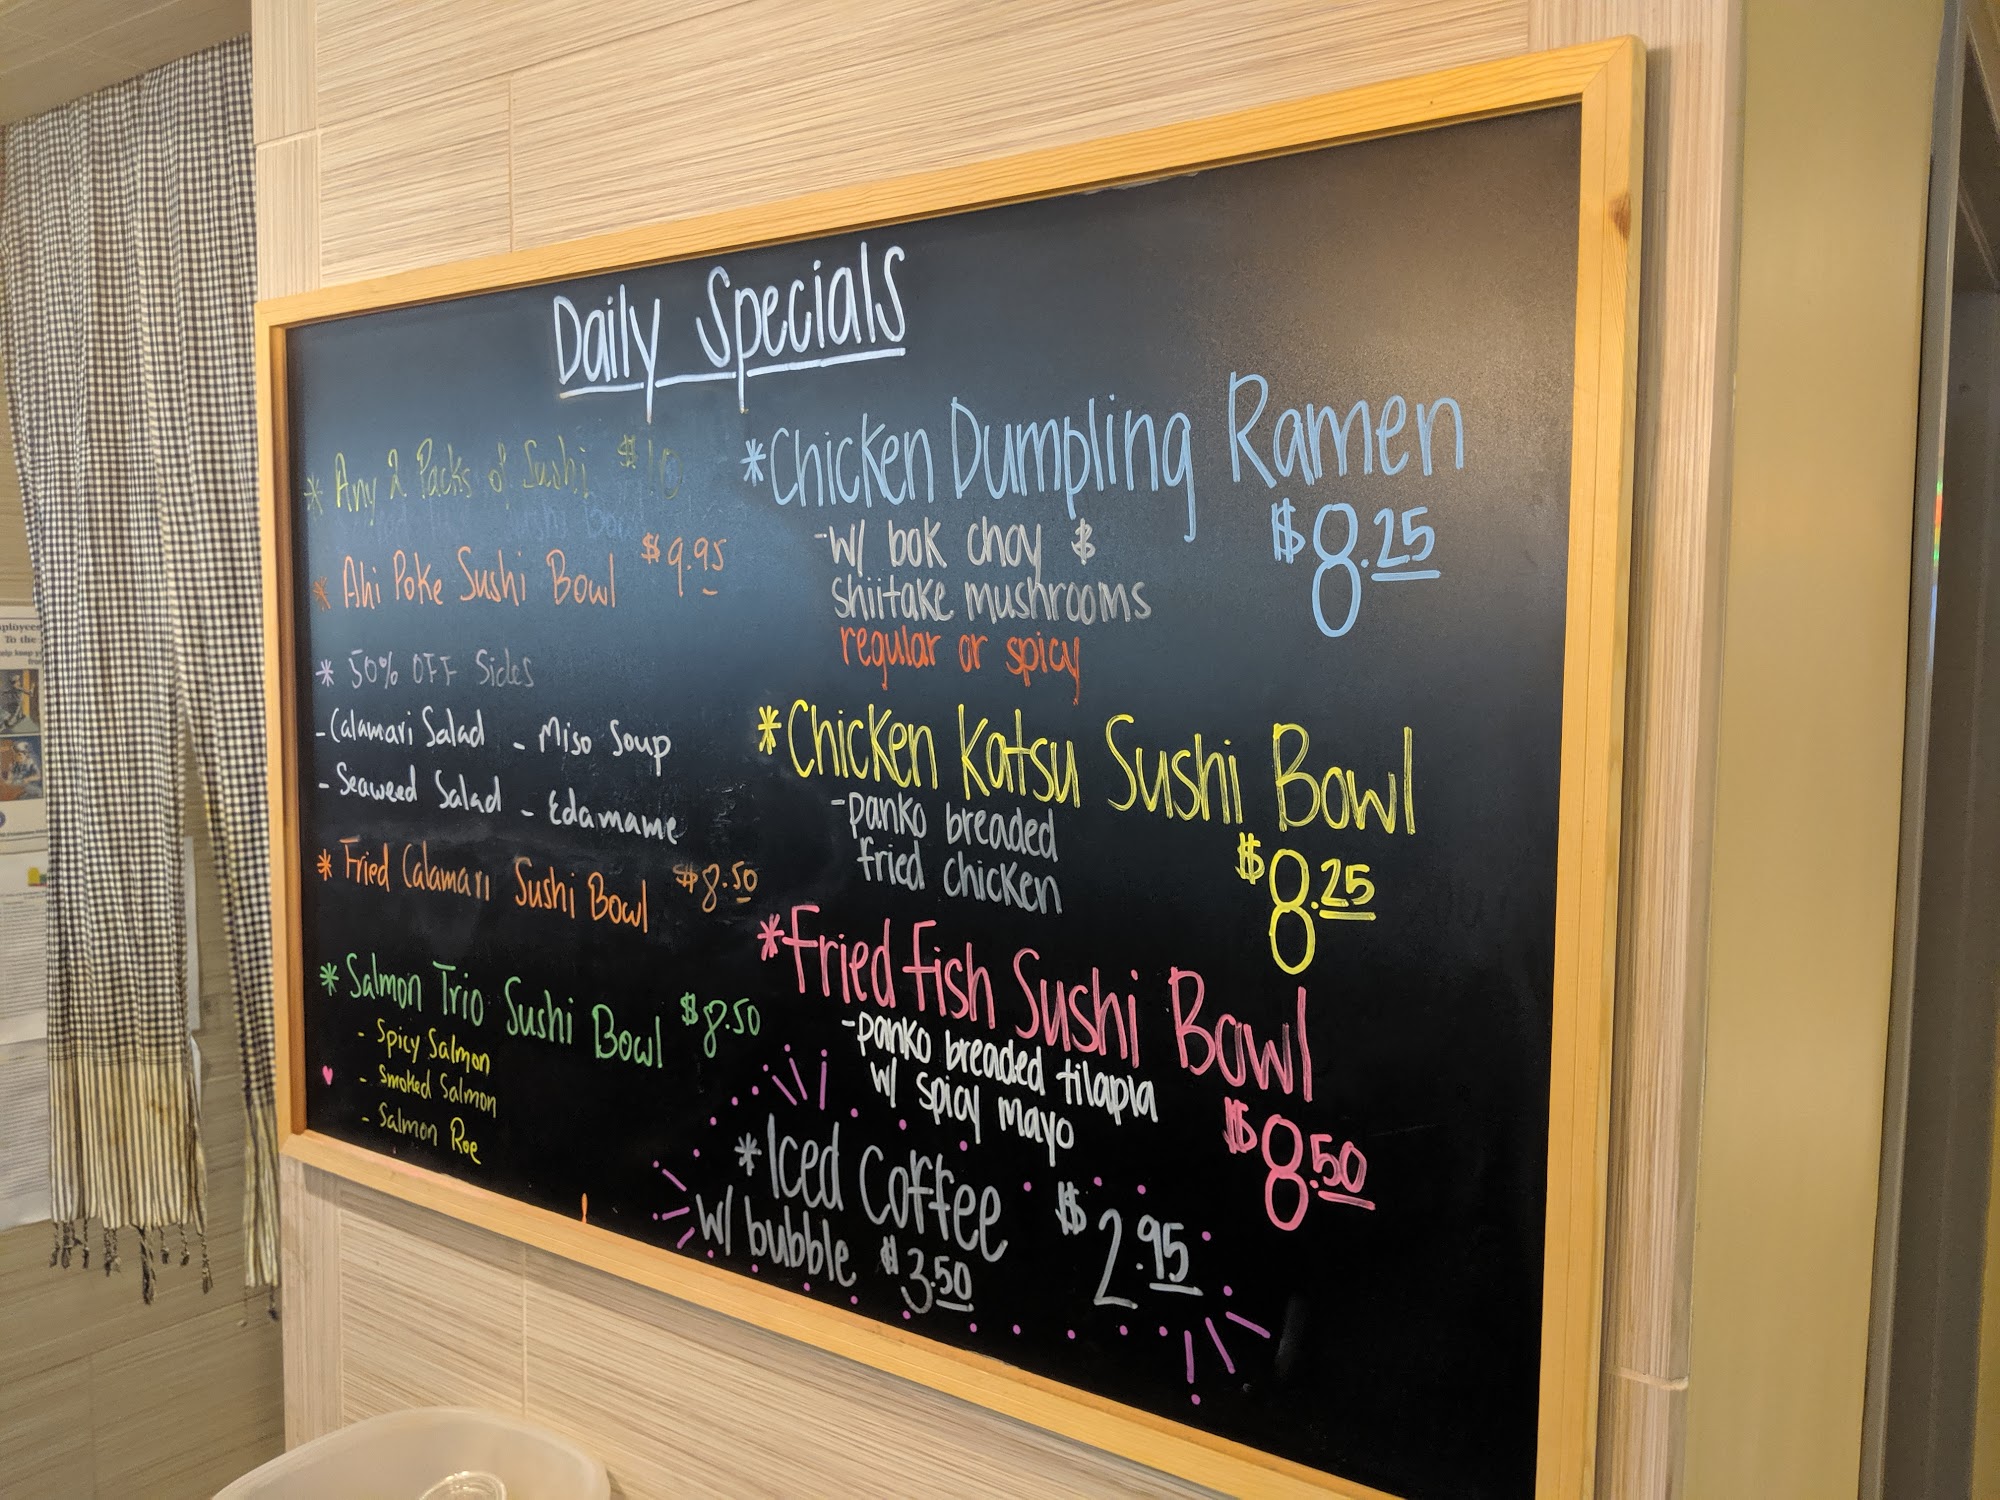 Daily Specials
* Any 2 Packs of Sushi $10
* Ahi Poke Sushi Bowl $9.95
* 50% OFF Sides
- Calamari Salad - Miso Soup
- Seaweed Salad - Edamame
* Fried Calamari Sushi Bowl $8.50
* Salmon Trio Sushi Bowl $8.50
- Spicy Salmon
- Smoked Salmon
- Salmon Roe
*Chicken Dumpling Ramen
$8.25
-w/ bok choy &
shiitake mushrooms
regular or spicy
*Chicken Katsu Sushi Bowl
$8.25
-panko breaded
fried chicken
*Fried Fish Sushi Bowl
$8.50
-panko breaded tilapia
w/ spicy mayo
*Iced Coffee $2.95
w/ bubble $3.50
mployees
To the